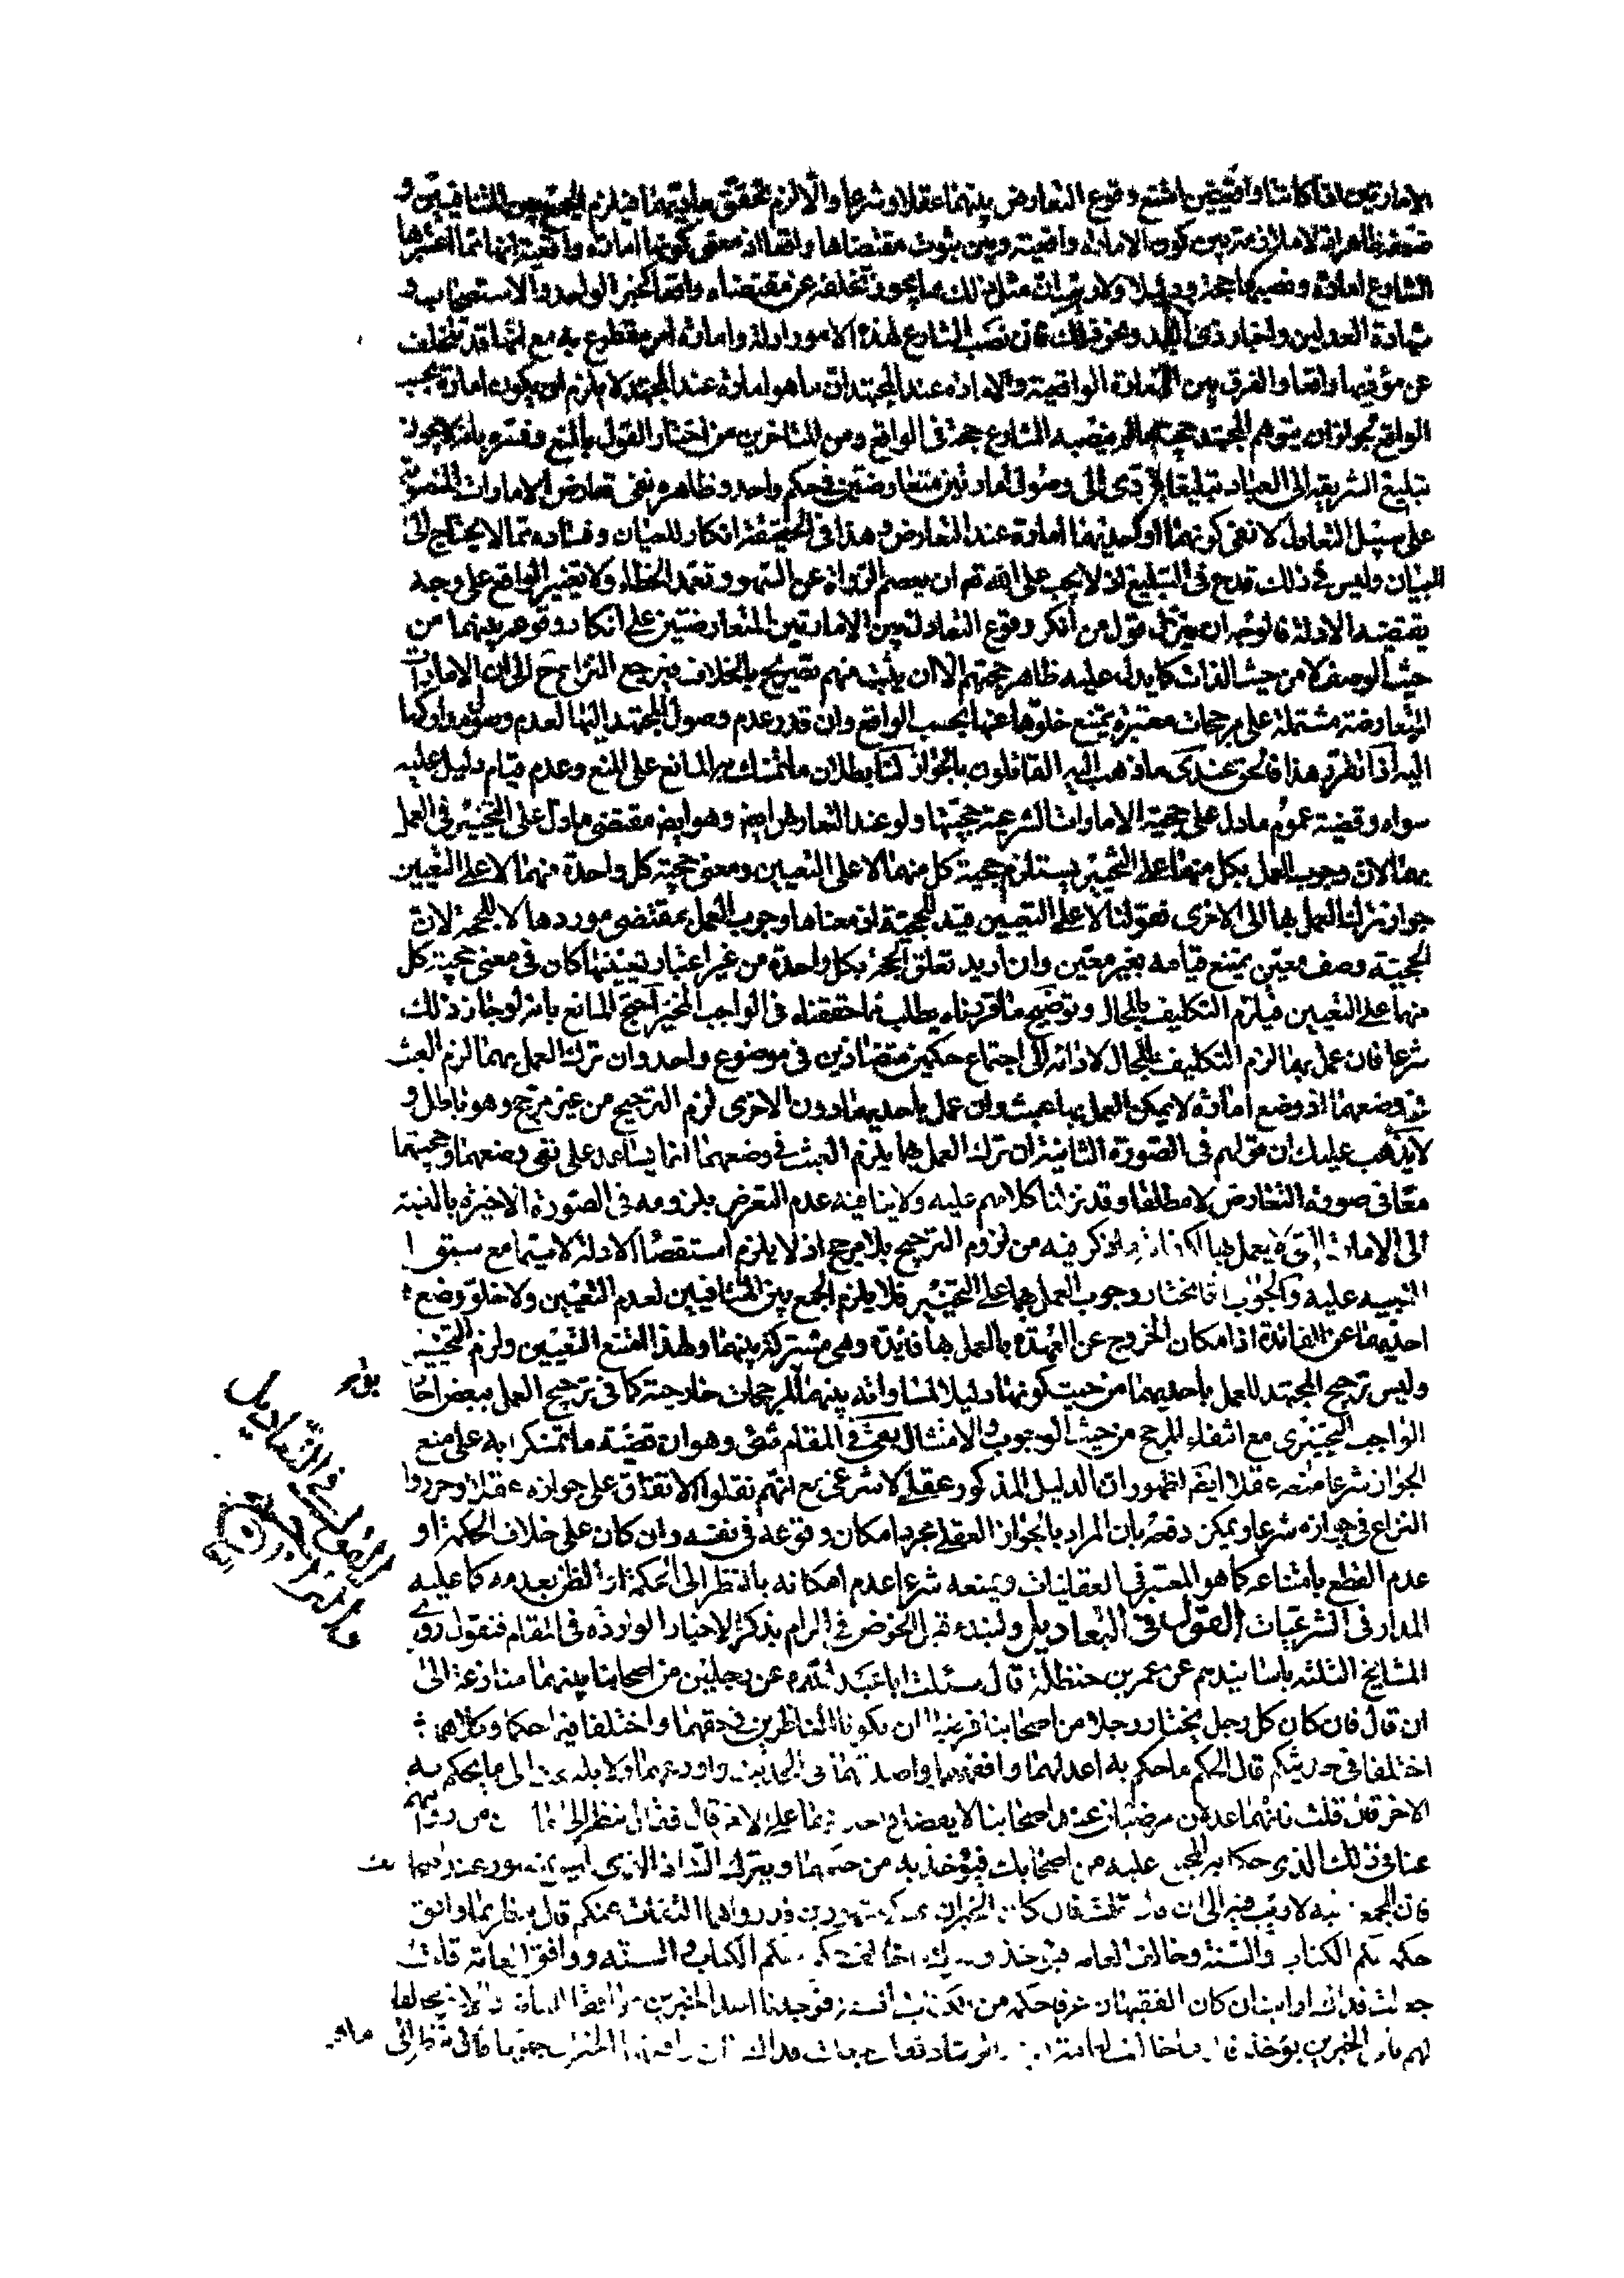 الامارتين اذا كانتا واقعيتين امتنع وقوع التعارض بينهما عقلا وشرعا والا لزم تحقق ماديهما فيلزم الجمع بين المتنافيين و
ضعفه ظاهر اذ لا ملازمة بين كون الامارة واقعية وبين ثبوت مقتضاها واقعا اذ معنى كونها امارة واقعية انها مما اعتبرها
الشارع امارة ونصبها حجة ودليلا ولا ريب ان مثل ذلك مما يجوز تخلفه عن مقتضاه واقعا كخبر الواحد والاستصحاب و
شهادة العدلين واخبار ذى اليد ونحو ذلك فان نصب الشارع لهذه الامور ادلة وامارة امر مقطوع به مع انها قد تتخلف
عن مؤديها واقعا والفرق بين الامارة الواقعية والامارة عند المجتهد ان ما هو امارة عند المجتهد لا يلزم ان يكون امارة بحسب
الواقع لجواز ان يتوهم المجتهد حجية ما لم ينصبه الشارع حجة فى الواقع ومن المتاخرين من اختار القول بالمنع وفسره بانه لا يجوز
تبليغ الشريعة الى العباد تبليغا يؤدى الى وصول امارتين متعارضتين فى حكم واحد وظاهره نفى تعارض الامارات المنصوبة
على سبيل التعادل لا نفى كونهما او احديهما امارة عند التعارض وهذا فى الحقيقة انكار للعيان وفساده مما لا يحتاج الى
البيان وليس فى ذلك قدح فى التبليغ اذ لا يجب على الله تم ان يعصم الرواة عن السهو وتعمد الخطاء ولا تغيير الواقع على وجه
يقتضيه الادلة فالوجه ان ينزل قول من انكر وقوع التعادل بين الامارتين المتعارضتين على انكار وقوعه بينهما من
حيث الوصف لا من حيث الذات كما يدل عليه ظاهر حجتهم الا ان يثبت منهم تصريح بالخلاف فيرجع النزاع ح الى ان الامارات
المتعارضة مشتملة على مرجحات معتبرة يمتنع خلوها عنها بحسب الواقع وان قدر عدم وصول المجتهد اليها لعدم وصولها او كها
اليه اذا نظر به هذا فالحق عندى ما ذهب اليه القائلون بالجواز لنا بطلان ما تمسك به المانع على المنع وعدم قيام دليل عليه
سواه وقضية عموم ما دل على حجية الامارات الشرعية حجيتها ولو عند التعارض ايضا وهو ايضا مقتضى ما دل على التخيير فى العمل
بهما لان وجوب العمل بكل منهما على التخيير يستلزم حجية كل منهما لا على التعيين ومعنى حجية كل واحدة منهما لا على التعيين
جواز ترك العمل بها الى الاخرى فقولنا لا على التعيين قيد للحجية اذ معناها وجوب العمل بمقتضى موردها لا للحجة لان
الحجية وصف معين يمتنع قيامه بغير معين وان اريد تعلق الحجة بكل واحدة من غير اعتبار تعيينها كان فى معنى حجية كل
منهما على التعيين فيلزم التكليف بالمحال وتوضيح ما قررناه يطلب مما حققناه فى الواجب المخير احتج المانع بانه لو جاز ذلك
شرعا فان عمل بهما لزم التكليف بالمحال لادائه الى اجتماع حكمين متضادين فى موضوع واحد وان ترك العمل بهما لزم العبث
فى وضعهما اذ وضع امارة لا يمكن العمل بها عبث وان عمل باحديهما دون الاخرى لزم الترجيح من غير مرجح وهو باطل و
لا يذهب عليك ان قولهم فى الصورة الثانية ان ترك العمل بهما يلزم العبث فى وضعهما انما يساعد على نفى وضعهما وحجيتهما
معا فى صورة التعارض لا مطلقا وقد نزلنا كلامهم عليه ولا ينافيه عدم التعرض بلزومه فى الصورة الاخيرة بالنسبة
الى الامارة التى لا يعمل بها اكتفاء بما ذكر فيه من لزوم الترجيح بلا مرجح اذ لا يلزم استقصاء الادلة لا سيما مع سبق
التنبيه عليه والجواب انا نختار وجوب العمل بهما على التخيير فلا يلزم الجمع بين المتنافيين لعدم التعيين ولا خلو وضع
احديهما عن الفائدة اذ امكان الخروج عن العهدة بالعمل بها فايدة وهى مشتركة بينهما ولهذا امتنع التعيين ولزم التخيير
وليس ترجيح المجتهد للعمل باحديهما من حيث كونها دليلا لمساواته بينهما بل لمرجحات خارجية كما فى ترجيح العمل ببعض احاد
الواجب التخييرى مع انتفاء المرجح من حيث الوجوب والامتثال بقى فى المقام شئ وهو ان قضية ما تمسكوا به على منع
الجواز شرعا منعه عقلا ايضا لظهور ان الدليل المذكور عقلى لا شرعى مع انهم نقلوا الاتفاق على جوازه عقلا وحرروا
النزاع فى جوازه شرعا ويمكن دفعه بان المراد بالجواز العقلى مجرد امكان وقوعه فى نفسه وان كان على خلاف الحكمة او
عدم القطع بامتناعه كما هو المعتبر فى العقليات وبمنعه شرعا عدم امكانه بالنظر الى الحكمة او الظن بعدمه كما عليه
المدار فى الشرعيات القول فى التعاديل ولنبدء قبل الخوض فى المرام بذكر الاخبار الواردة فى المقام فنقول روى
المشايخ الثلثة باسانيدهم عن عمر بن حنظلة قال سئلت ابا عبد الله عن رجلين من اصحابنا بينهما منازعة الى
ان قال فان كان كل رجل يختار رجلا من اصحابنا فرضيا ان يكونا الناظرين فى حقهما واختلفا فيما حكما وكلاهما
اختلفا فى حديثكم قال الحكم ما حكم به اعدلهما وافقههما واصدقهما فى الحديث واورعهما ولا يلتفت الى ما يحكم به
الاخر قال قلت فانهما عدلان مرضيان عند اصحابنا لا يفضل احد منهما على الاخر قال فقال ينظر الى ما من روايتهم
عنا فى ذلك الذى حكما به المجمع عليه من اصحابك فيؤخذ به من حكمهما ويترك الشاذ الذى ليس بمشهور عند اصحابك
فان المجمع عليه لا ريب فيه الى ان قال قلت فان كان الخبران عنكم مشهورين قد رواهما الثقات عنكم قال ينظر فما وافق
حكمه حكم الكتاب والسنة وخالف العامة فيؤخذ به ويترك ما خالف حكمه حكم الكتاب والسنة ووافق العامة قلت
جعلت فداك ارايت ان كان الفقيهان عرفا حكمه من الكتاب والسنة فوجدنا احد الخبرين موافقا للعامة والاخر مخالفا
لهم باى الخبرين يؤخذ قال ما خالف العامة ففيه الرشاد فقلت جعلت فداك فان وافقهما الخبران جميعا قال ينظر الى ما هم
القول فى التعاديل